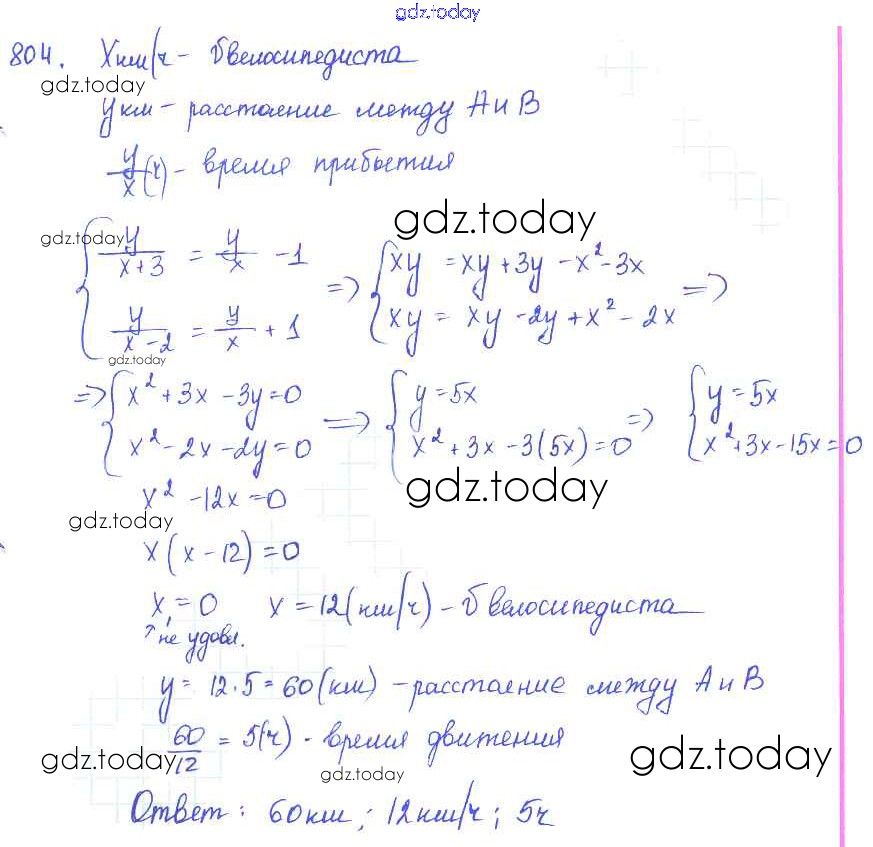 gdz.today
804. Xкм/ч - υ велосипедиста
gdz.today
y км - расстояние между A и B
y/x (ч) - время прибытия
gdz.today
gdz.today
{ y/(x+3) = y/x - 1 => { xy = xy + 3y - x² - 3x =>
{ y/(x-2) = y/x + 1 { xy = xy - 2y + x² - 2x
gdz.today
=> { x² + 3x - 3y = 0 => { y = 5x => { y = 5x
{ x² - 2x - 2y = 0 { x² + 3x - 3(5x) = 0 { x² + 3x - 15x = 0
x² - 12x = 0
gdz.today
gdz.today
x(x - 12) = 0
x₁ = 0 x = 12 (км/ч) - υ велосипедиста
↑ не удовл.
y = 12·5 = 60 (км) - расстояние между A и B
60/12 = 5(ч) - время движения
gdz.today
gdz.today
gdz.today
Ответ: 60км; 12км/ч; 5ч